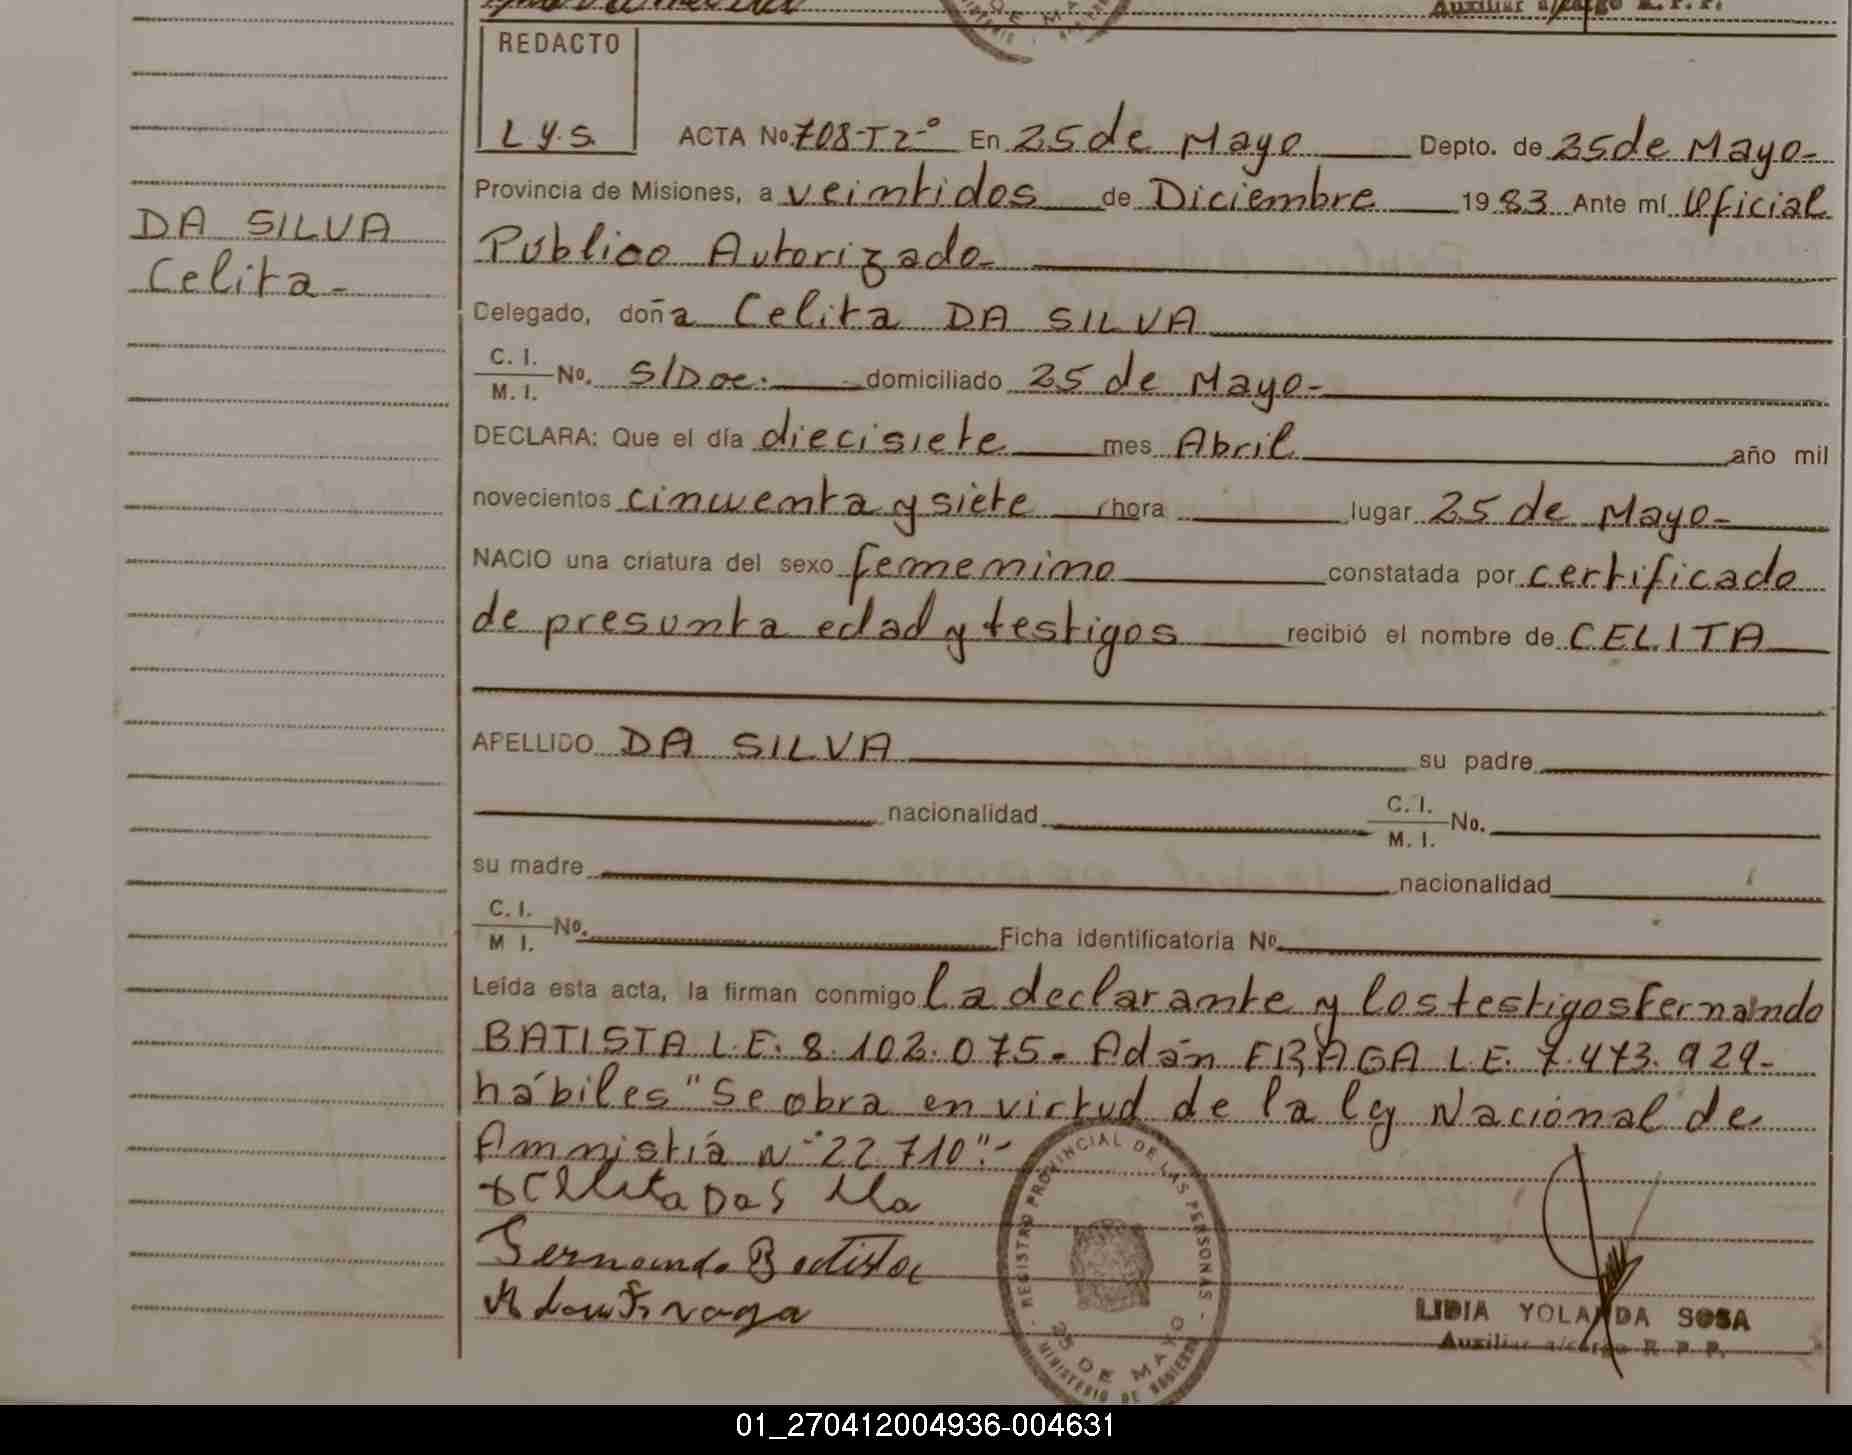 Auxiliar a/cargo R.P.P.
REDACTO
L y.S.
ACTA No. 708-T2-º En 25 de Mayo Depto. de 25 de Mayo-
Provincia de Misiones, a veintidos de Diciembre 1983 Ante mí Oficial
Público Autorizado-
DA SILVA
Celita-
Delegado, doña Celita DA SILVA
C. I. / M. I. No. S/Doc. domiciliado 25 de Mayo-
DECLARA: Que el día diecisiete mes Abril año mil
novecientos cincuenta y siete hora lugar 25 de Mayo-
NACIO una criatura del sexo femenino constatada por certificado
de presunta edad y testigos recibió el nombre de CELITA
APELLIDO DA SILVA su padre
nacionalidad C. I. / M. I. No.
su madre nacionalidad
C. I. / M I. No. Ficha identificatoria No
Leída esta acta, la firman conmigo la declarante y los testigos Fernando
BATISTA L.E. 8.102.075- Adán FRAGA L.E. 7.473.929-
hábiles "Se obra en virtud de la ley Nacional de
Amnistía Nº 22.710".-
Fernando Batista
Adan Fraga
REGISTRO PROVINCIAL DE LAS PERSONAS - MINISTERIO DE GOBIERNO -
25 DE MAYO
LIDIA YOLANDA SOSA
Auxiliar a/cargo R. P. P.
01_270412004936-004631